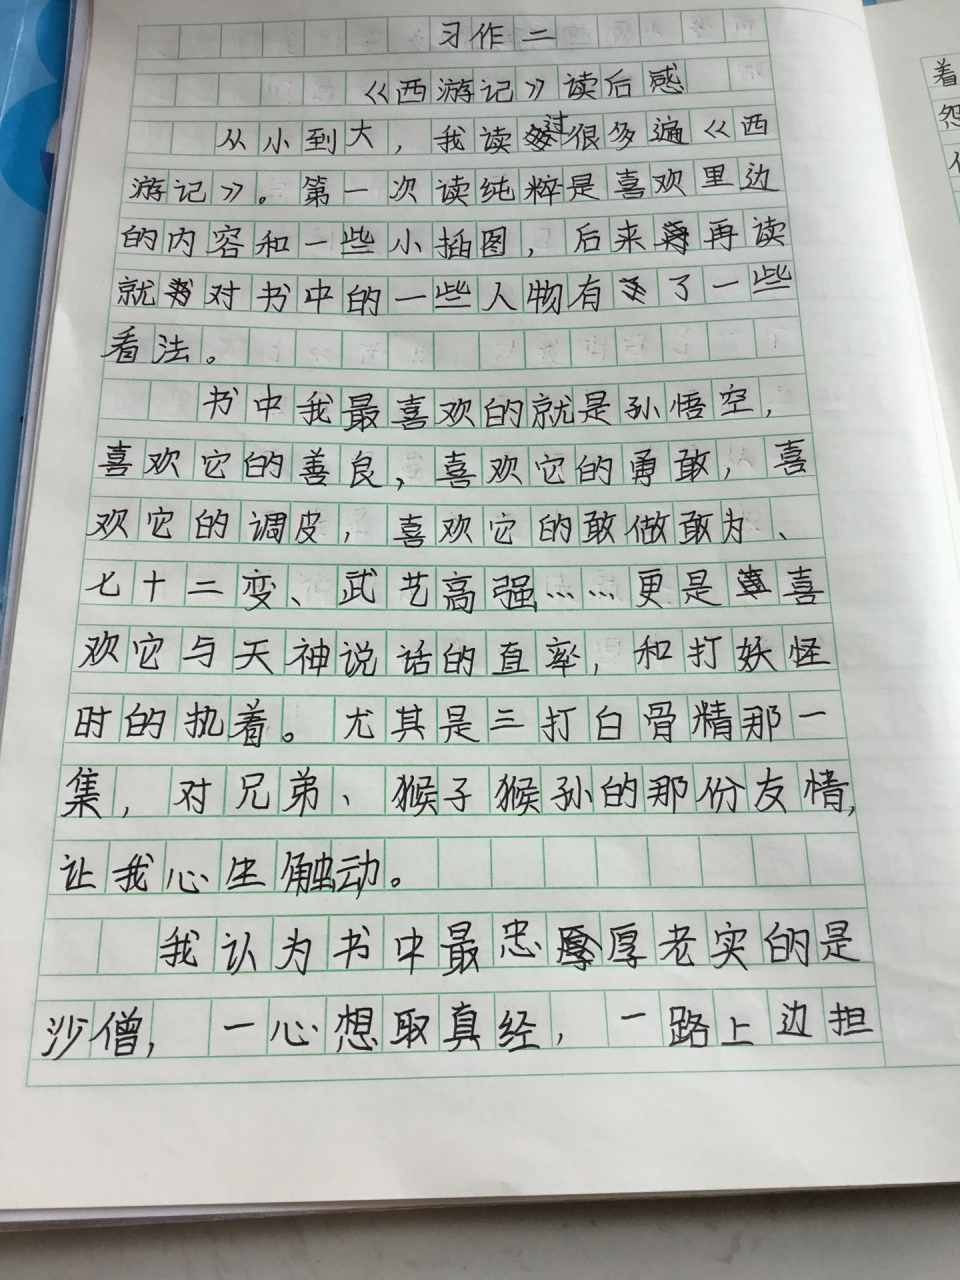 习作二
《西游记》读后感
从小到大，我读过很多遍《西
游记》。第一次读纯粹是喜欢里边
的内容和一些小插图，后来再读
就对书中的一些人物有了一些
看法。
书中我最喜欢的就是孙悟空，
喜欢它的善良，喜欢它的勇敢，喜
欢它的调皮，喜欢它的敢做敢为、
七十二变、武艺高强……更是喜
欢它与天神说话的直率，和打妖怪
时的执着。尤其是三打白骨精那一
集，对兄弟、猴子猴孙的那份友情，
让我心生触动。
我认为书中最忠厚老实的是
沙僧，一心想取真经，一路上边担
着
怨